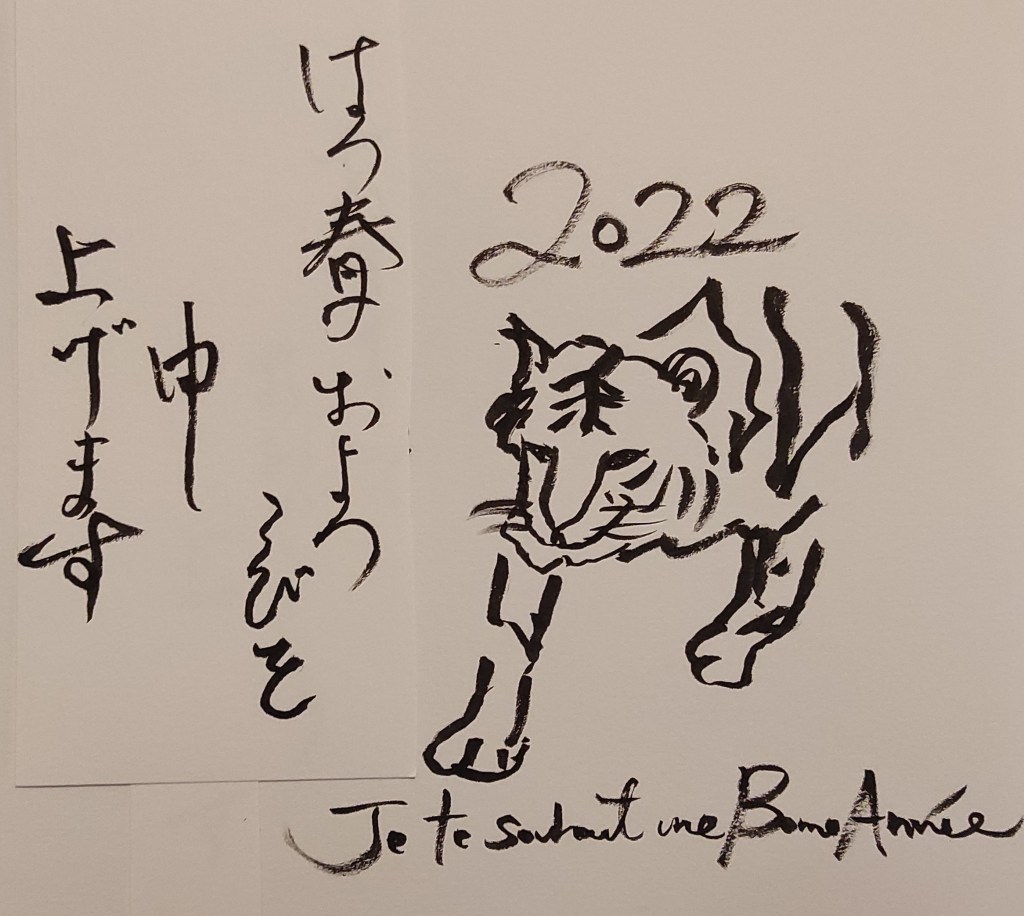 はつ春のおよろ
こびを
申
上げます
2022
Je te souhait une Bonne Année